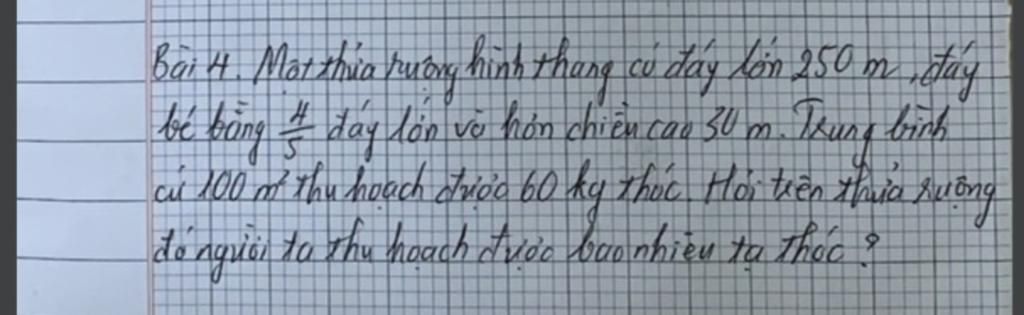 Bài 4. Một thửa ruộng hình thang có đáy lớn 250 m, đáy
bé bằng 4/5 đáy lớn và hơn chiều cao 30 m. Trung bình
cứ 100 m² thu hoạch được 60 kg thóc. Hỏi trên thửa ruộng
đó người ta thu hoạch được bao nhiêu tạ thóc?